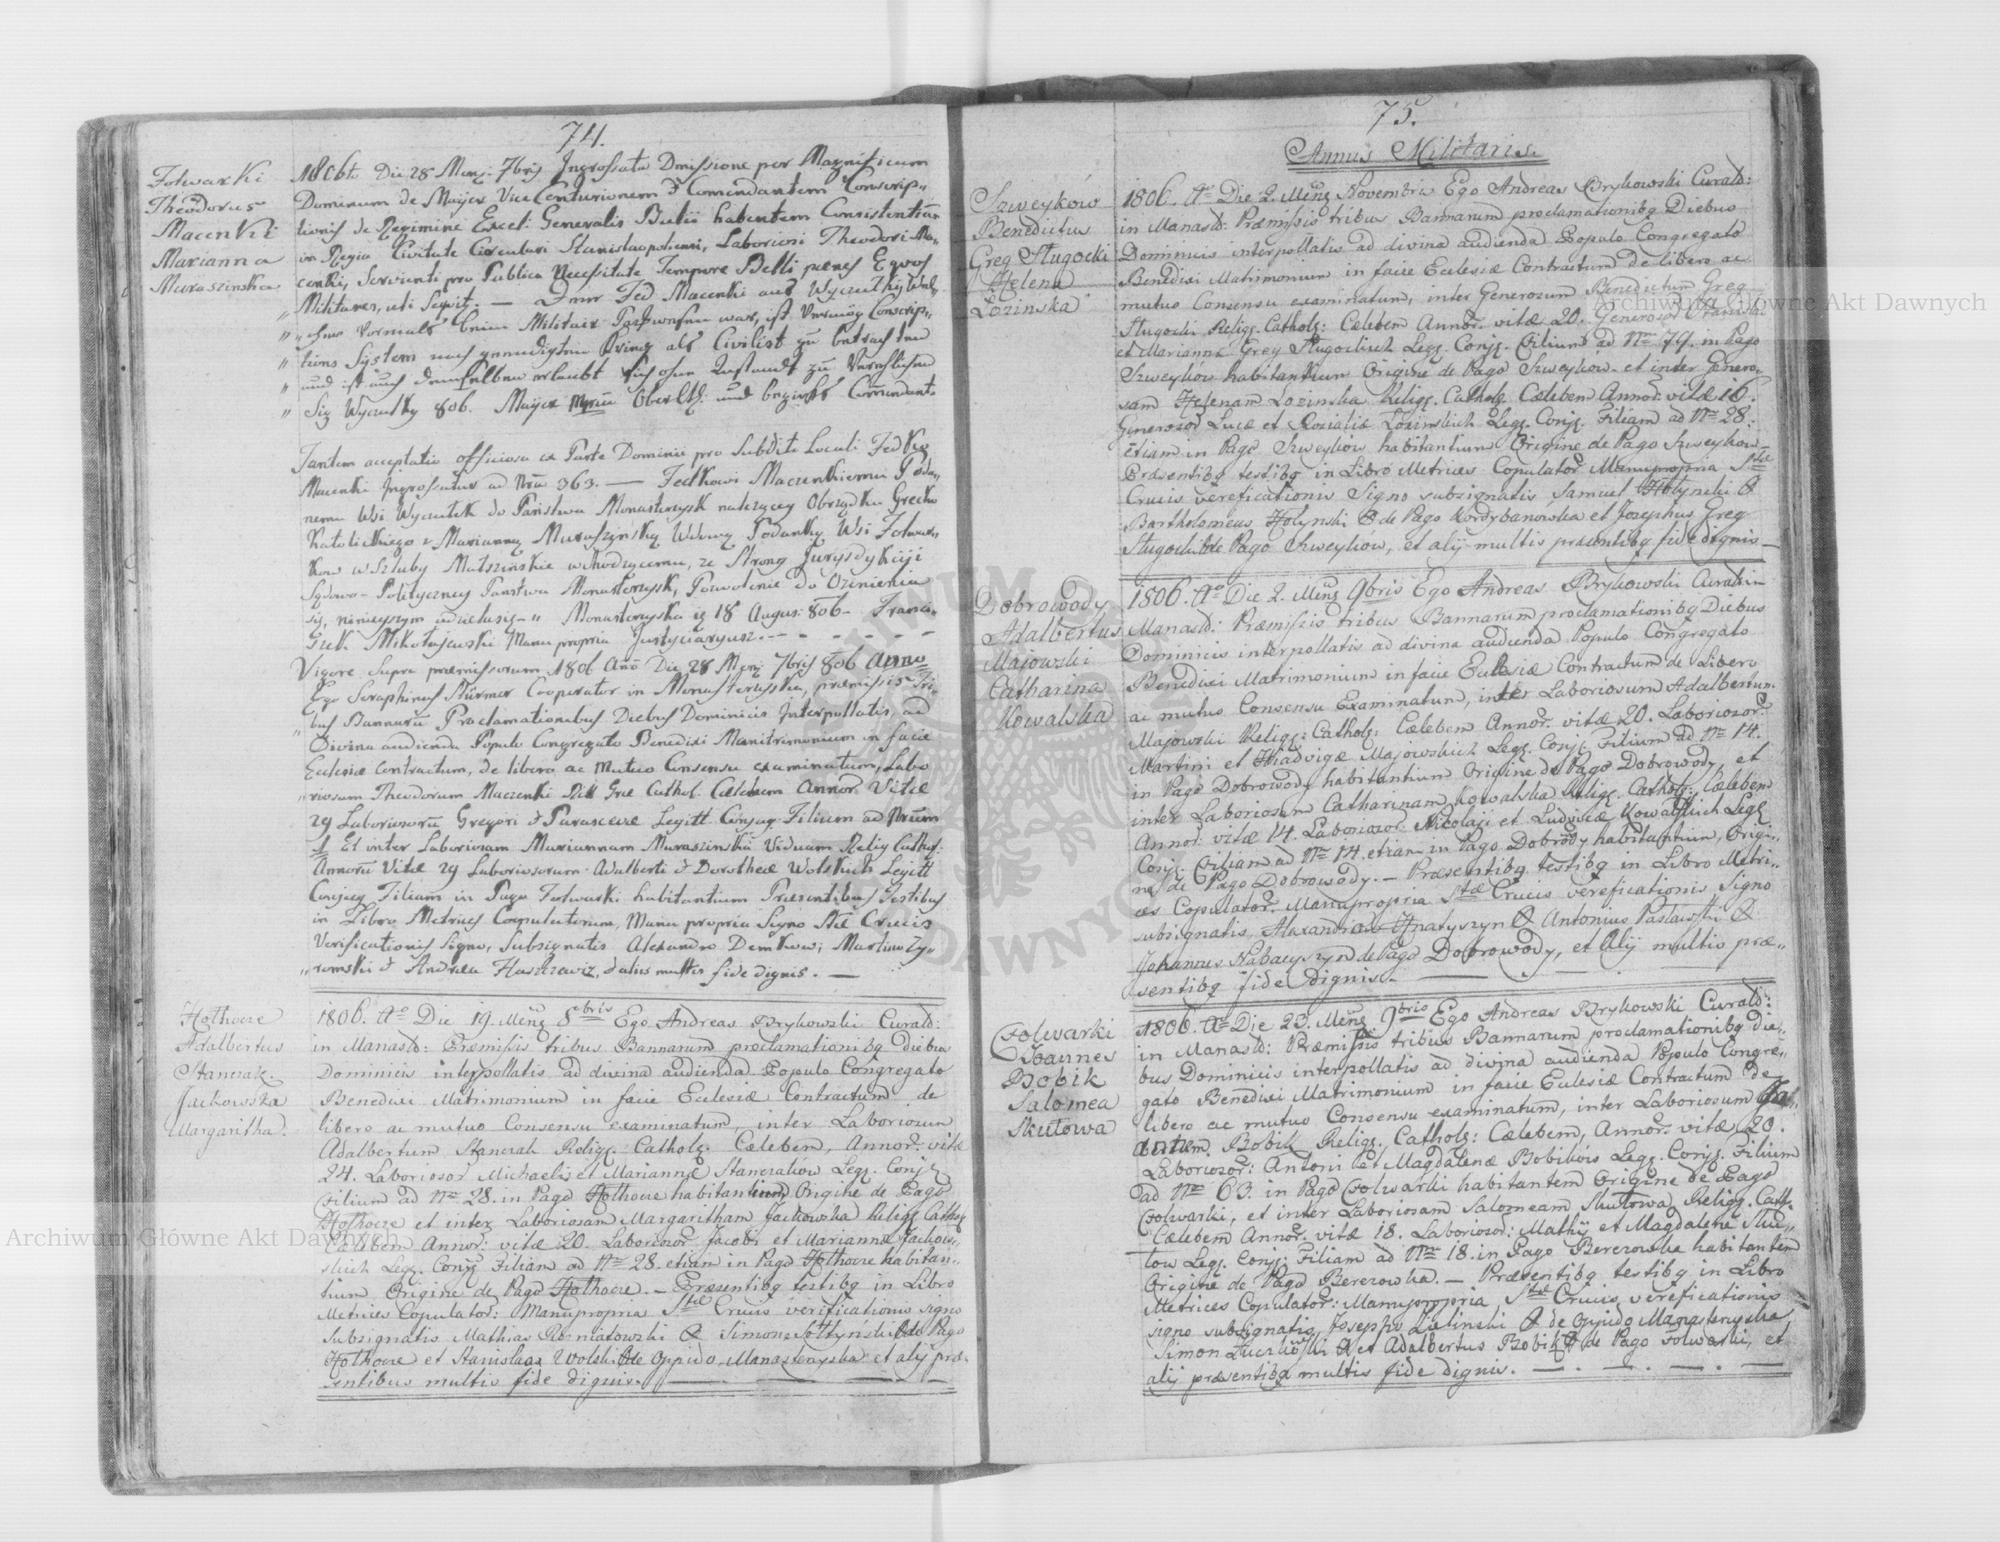 74.
Folwarki
Theodorus
Macenki
Marianna
Muraszinska
1806to Die 28 Mens: 7bris Ingrossata Dmissione per Magnificum
Dominum de Maijer Vice Centurionem & Comendantem Conscrip„
tionis de Regimine Excel: Generalis Butii habentem Consistentiam
in Regia Civitate Circulari Stanislaopoliensi, Laboriosi Theodori Ma„
cenki, Servienti pro Publica Necessitate Tempore Belli penes Equos
Militares, uti Sequit. — Fed Macenki aus Wyczulki, Wel„
„ cher vormals beim Militair war, ist vermög Conscrip„
„ tions System als Civilist zu betrachten
„ und ist auch demselben erlaubt sich ohne Anstandt zu Verehlichen
„ Sig Wyczulky 806. Maijer Oberltt: und bezirks Commendant.
Tantem acceptatio officiosa ex Parte Dominii pro Subdito Locali Fedko
Macenki Ingrossatur ad Nrum 363. — Fedkowi Maczenkiemu Podda„
nemu Wsi Wyczulek do Państwa Monasterzysk należącey Obrządku Grecko
Katolickiego z Marianną Muraszinską Wdową Poddanką Wsi Folwar„
kow w Szluby Małszinskie wchodzącemu, ze Strony Jurysdykcyi
Sądowo-Polityczney Panstwa Monasterzysk, Pozwolenie do Ożenienia
się, nineyszym udziela się „ Monasterzyska ig 18 August 806 — Francis„
Szek Mikołajewski Manu propria Justycyaryusz. — - - - - -
Vigore Supra praemissorum 1806 Ano Die 28 Mens 7bris 806 Anno
Ego Seraphinus Stürmer Cooperator in Monasterzyska, praemissis Tri„
bus Bannorū Proclamationibus Diebus Dominicis Interpollatis, ad
Divina audienda Populo Congregato Benedixi Manitrimonium in facie
Ecclesiae contractum, de libero ac mutuo Consensu examinatum, Labo
„ riosum Theodorum Maczenki Rit Grae Cathol. Caelebem Annor Vitae
29 Laboriosorū Gregori & Parascevae Legitt Conjug: Filium ad Nrum
1 Et inter Laboriosam Mariannam Muraszinskā Viduam Relig Cathol:
Annorū Vitae 29 Laboriosorum Adalberti & Dorotheae Wolskich Legitt
Conjug Filiam in Pago Folwarki habitantium Praesentibus Testibus
in Libro Metrices Copulatorum, Manu propria Signo Stae Crucis
Verificationis Signo, Subsignatis Alexandro Demkow, Martino Zy„
„ romski & Andrea Haszczewiz, & alius multis fide dignis. —
Hołhocze
Adalbertus
Stanczak.
Jackowska
Margaritha.
1806. Ao Die 19. Mens 8bris Ego Andreas Brykowski Curatd:
in Manastd: Praemissis tribus Bannarum proclamationibq diebus
Dominicis interpollatis ad divina audienda Populo Congregato
Benedixi Matrimonium in facie Ecclesiae Contractum de
libero ac mutuo Consensu examinatum, inter Laboriosum
Adalbertum Stanczak Religg. Catholg. Caelebem, Annor. vitae
24. Laboriosor Michaelis et Mariannae Stanczakow Legg. Conjg
Filium ad Nro 28. in Pago Hołhocze habitantium Origine de Pago
Hołhocze et inter Laboriosam Margaritham Jackowska Religg Catholg
Caelebem Annor: vitae 20. Laboriosor Jacobi et Mariannae Jackows„
skich Legg. Conjg Filiam ad Nro 28. etiam in Pago Hołhocze habitan„
tium Origine de Pago Hołhocze. — Praesentibq testibq in Libro
Metrices Copulator: Manupropria Stae Crucis verificationis signo
subsignatis Mathias Rozniatowski & Simone Sołtyński & de Pago
Hołhocze et Stanislaus Wolski & de Oppido Manasterzyska et alij prae„
sentibus multis fide dignis. — — —
75.
Annus Militaris.
Szweyków
Benedictus
Greg Sługocki
Helena
Łozinska
1806. Ao Die 2. Mens Novembris Ego Andreas Brykowski Curatd:
in Manastd: Praemissis tribus Bannarum proclamationibq Diebus
Dominicis interpollatis ad divina audienda Populo Congregato
Benedixi Matrimonium in facie Ecclesiae Contractum de libero ac
mutuo Consensu examinatum, inter Generosum Benedictum Greg
Sługocki Religg. Catholg: Caelebem Annor. vitae 20. Generosor Stanislai
et Marianna Greg Sługockich Legg. Conjg. Filium ad Nro 74. in Pago
Szweyków habitantium Origine de Pago Szweyków. et inter Genero„
sam Helenam Łozinska Religg. Catholg Caelebem Annor. vitae 16.
Generosor Lucae et Rozaliae Łozinskich Legg. Conjg. Filiam ad Nro 28.
Etiam in Pago Szweyków habitantium Origine de Pago Szweykow
Praesentibq testibq in Libro Metrices Copulator Manupropria Stae
Crucis vereficationis Signo subsignatis Samuel Hołynski &
Bartholomeus Hołynski & de Pago Kordybanówka et Josephus Greg
Sługocki & de Pago Szweykow, et alij multis praesentibq fide dignis —
Dobrowody
Adalbertus
Majowski
Catharina
Kowalska
1806. Ao Die 2. Mens 9bris Ego Andreas Brykowski Curatd in
Manastd: Praemissis tribus Bannarum proclamationibq Diebus
Dominicis interpollatis ad divina audienda Populo Congregato
Benedixi Matrimonium in facie Ecclesiae Contractum de Libero
ac mutuo Consensu Examinatum, inter Laboriosum Adalbertum
Majowski Religg: Catholg: Caelebem Annor. vitae 20. Laboriosor.
Martini et Hiadvigae Majowskich Legg. Conjg. Filium ad Nro 14.
in Pago Dobrowody habitantium Origine de Pago Dobrowody, et
inter Laboriosam Catharinam Kowalska Religg. Catholg: Caelebem
Annor. vitae 14. Laboriosor: Nicolaji et Ludvicae Kowalskich Legg
Conjg. Filiam ad Nro 14. etiam in Pago Dobrody habitantium, Origi„
ne de Pago Dobrowody. — Praesentibq testibq in Libro Metri„
ces Copulator. Manupropria Stae Crucis vereficationis Signo
subsignatis, Alexandrus Hnatyszyn & Antonius Paslawski &
Johannes Nabacyszyn de Pago Dobrowody, et Alij multis prae„
sentibq fide dignis. — — —
Folwarki
Joannes
Bobik
Salomea
Skutowa
1806. Ao Die 23. Mens 9bris Ego Andreas Brykowski Curatd:
in Manastd: Praemissis tribus Bannarum proclamationibq die„
bus Dominicis interpollatis ad divina audienda Populo Congre„
gato Benedixi Matrimonium in facie Ecclesiae Contractum de
libero ac mutuo Consensu examinatum, inter Laboriosum Jo„
annem Bobik Religg. Catholg: Caelebem, Annor. vitae 20.
Laboriosor: Antoni et Magdalenae Bobikow Legg. Conjg. Filium
ad Nro 63. in Pago Folwarki habitantem Origine de Pago
Folwarki, et inter Laboriosam Salomeam Skutowa Religg. Cath.
Caelebem Annor. vitae 18. Laboriosor: Mathij et Magdalene Sku„
tow Legg. Conjg: Filiam ad Nro 18. in Pago Berezowka habitantem
Origine de Pago Berezowka. — Praesentibq testibq in Libro
Metrices Copulator: Manupropria, Stae Crucis vereficationis
signo subsignatis, Josepho Zielinski & de Oppido Manasterzyska,
Simon Łucziński & et Adalbertus Bobik & de Pago Folwarki, et
alij praesentibq multis fide dignis. — . — . — . —
Archiwum Główne Akt Dawnych
Archiwum Główne Akt Dawnych